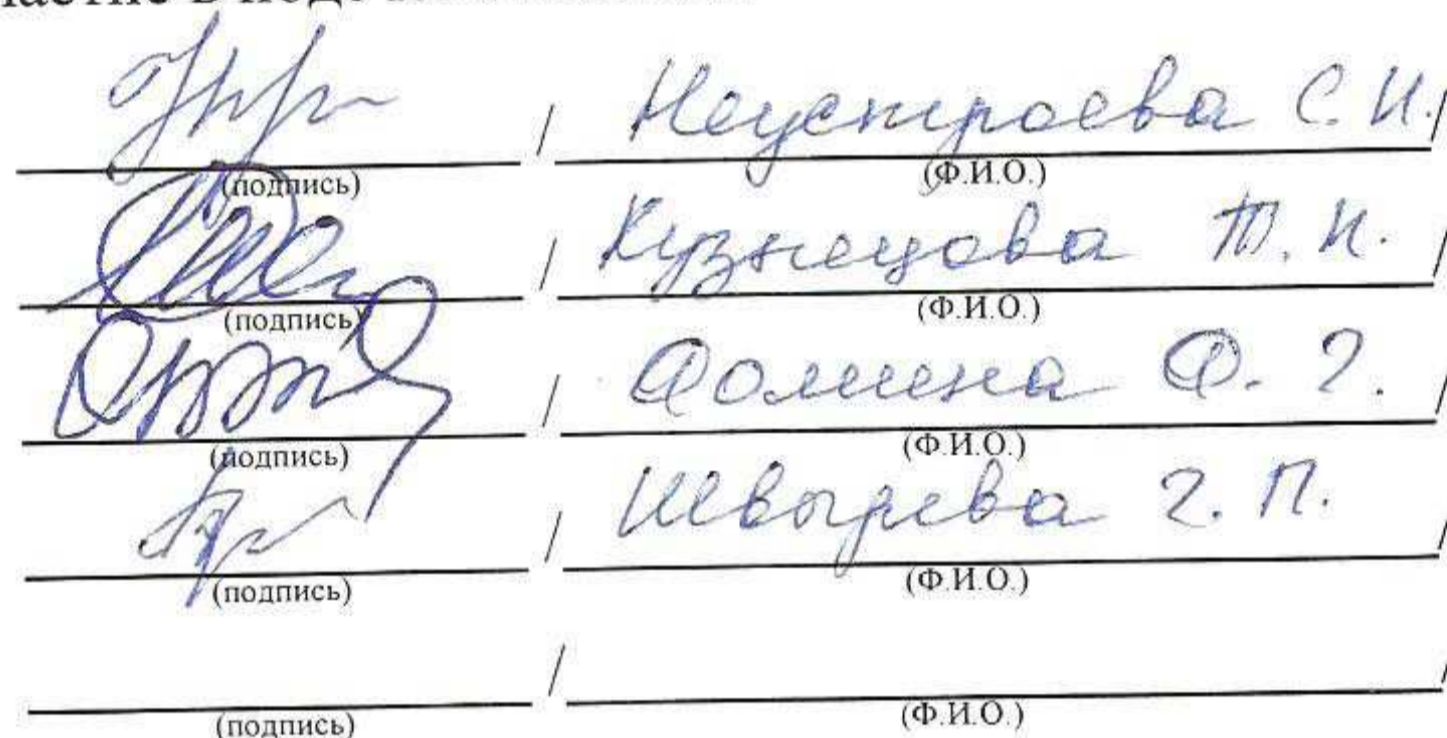 / Неустроева С. И. /
(подпись) (Ф.И.О.)
/ Кузнецова Т. И. /
(подпись) (Ф.И.О.)
/ Фомина Ф. Г. /
(подпись) (Ф.И.О.)
/ Швырева Г. П. /
(подпись) (Ф.И.О.)
/ /
(подпись) (Ф.И.О.)